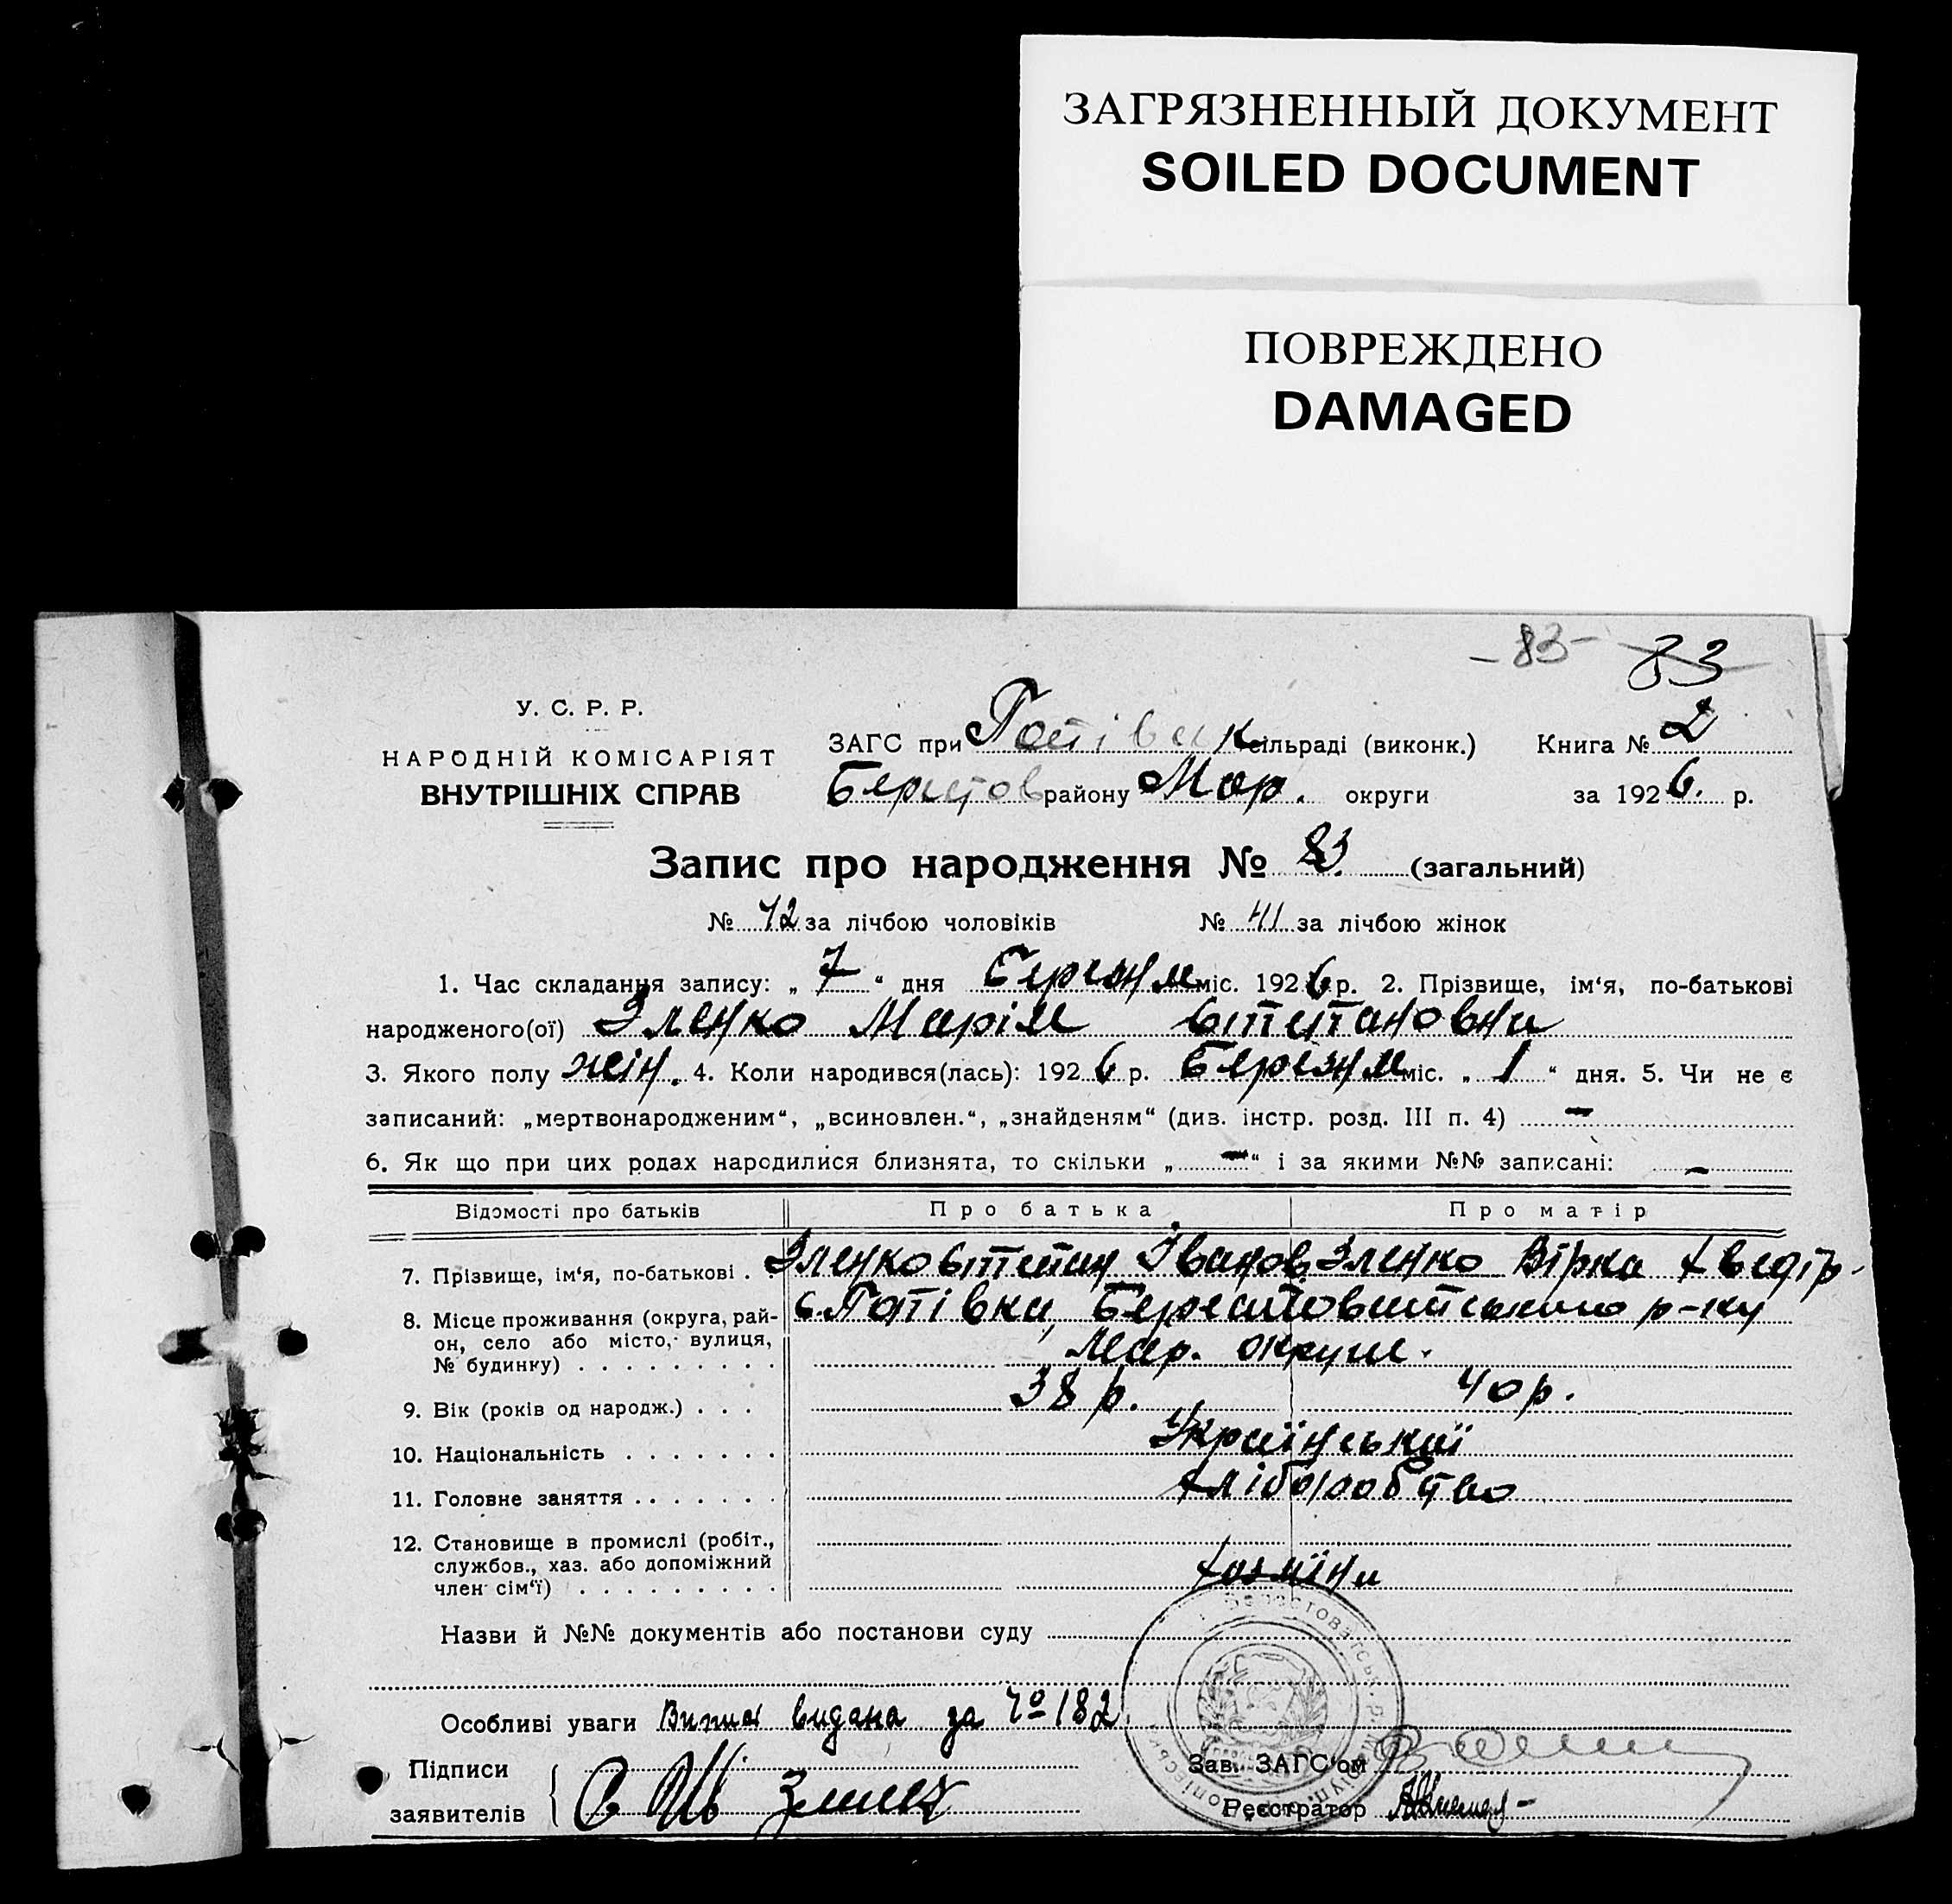 ЗАГРЯЗНЕННЫЙ ДОКУМЕНТ
SOILED DOCUMENT
ПОВРЕЖДЕНО
DAMAGED
-83- 83
У. С. Р. Р.
НАРОДНІЙ КОМІСАРІЯТ
ВНУТРІШНІХ СПРАВ
ЗАГС при Попівск сільраді (виконк.) Книга № 2
Берестов району Мар. округи за 1926. р.
Запис про народження № 83. (загальний)
№ 42 за лічбою чоловіків № 41 за лічбою жінок
1. Час складання запису: „ 7 “ дня Березня міс. 1926 р. 2. Прізвище, ім‘я, по-батькові
народженого(ої) Зленко Марія Степановна
3. Якого полу жін. 4. Коли народився(лась): 1926 р. Березня міс. „ 1 “ дня. 5. Чи не є
записаний: „мертвонародженим“, „всиновлен.“, „знайденям“ (див. інстр. розд. III п. 4) –
6. Як що при цих родах народилися близнята, то скільки „ – “ і за якими №№ записані: –
Відомості про батьків Про батька Про матір
7. Прізвище, ім‘я, по-батькові . . Зленко Степан Іванов Зленко Вірка Хведір-
8. Місце проживання (округа, рай- с. Попівка, Берестоватського р-ну
он, село або місто, вулиця, Мар. округи.
№ будинку) . . . . . . . . .
9. Вік (років од народж.) . . . 38 р. 40 р.
10. Національність . . . . . . . Української
11. Головне заняття . . . . . . . Хліборобство
12. Становище в промислі (робіт.,
службов., хаз. або допоміжний
член сім‘ї) . . . . . . . . . Хозяїни
Назви й №№ документів або постанови суду
Особливі уваги Випис видана за № 182
Підписи
заявителів
Зав. ЗАГС‘ом
Реєстратор